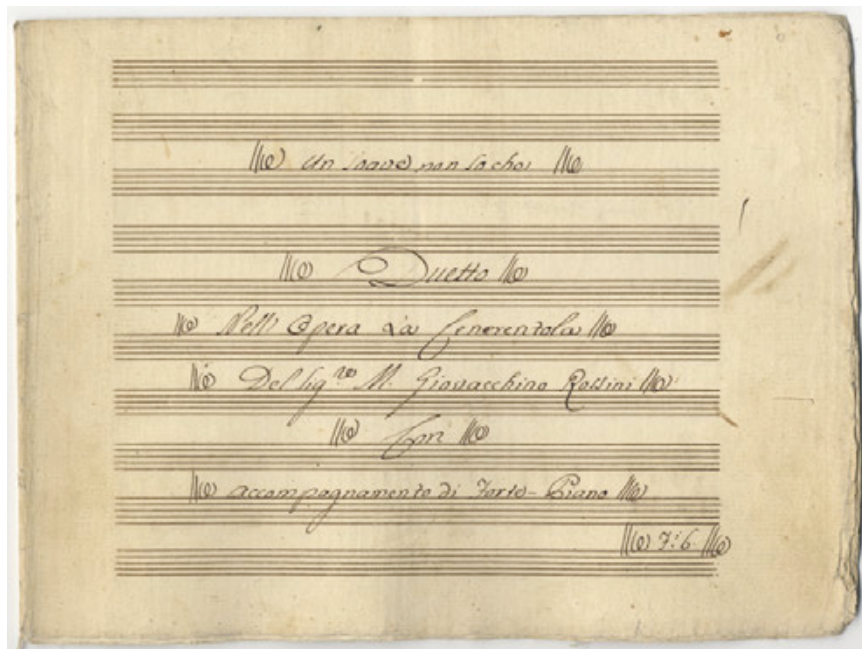 Un soave non so che
Duetto
Nell' Opera La Cenerentola
Del Sig.re M. Giovacchino Rossini
Con
accompagnamento di Forte-Piano
F: 6.